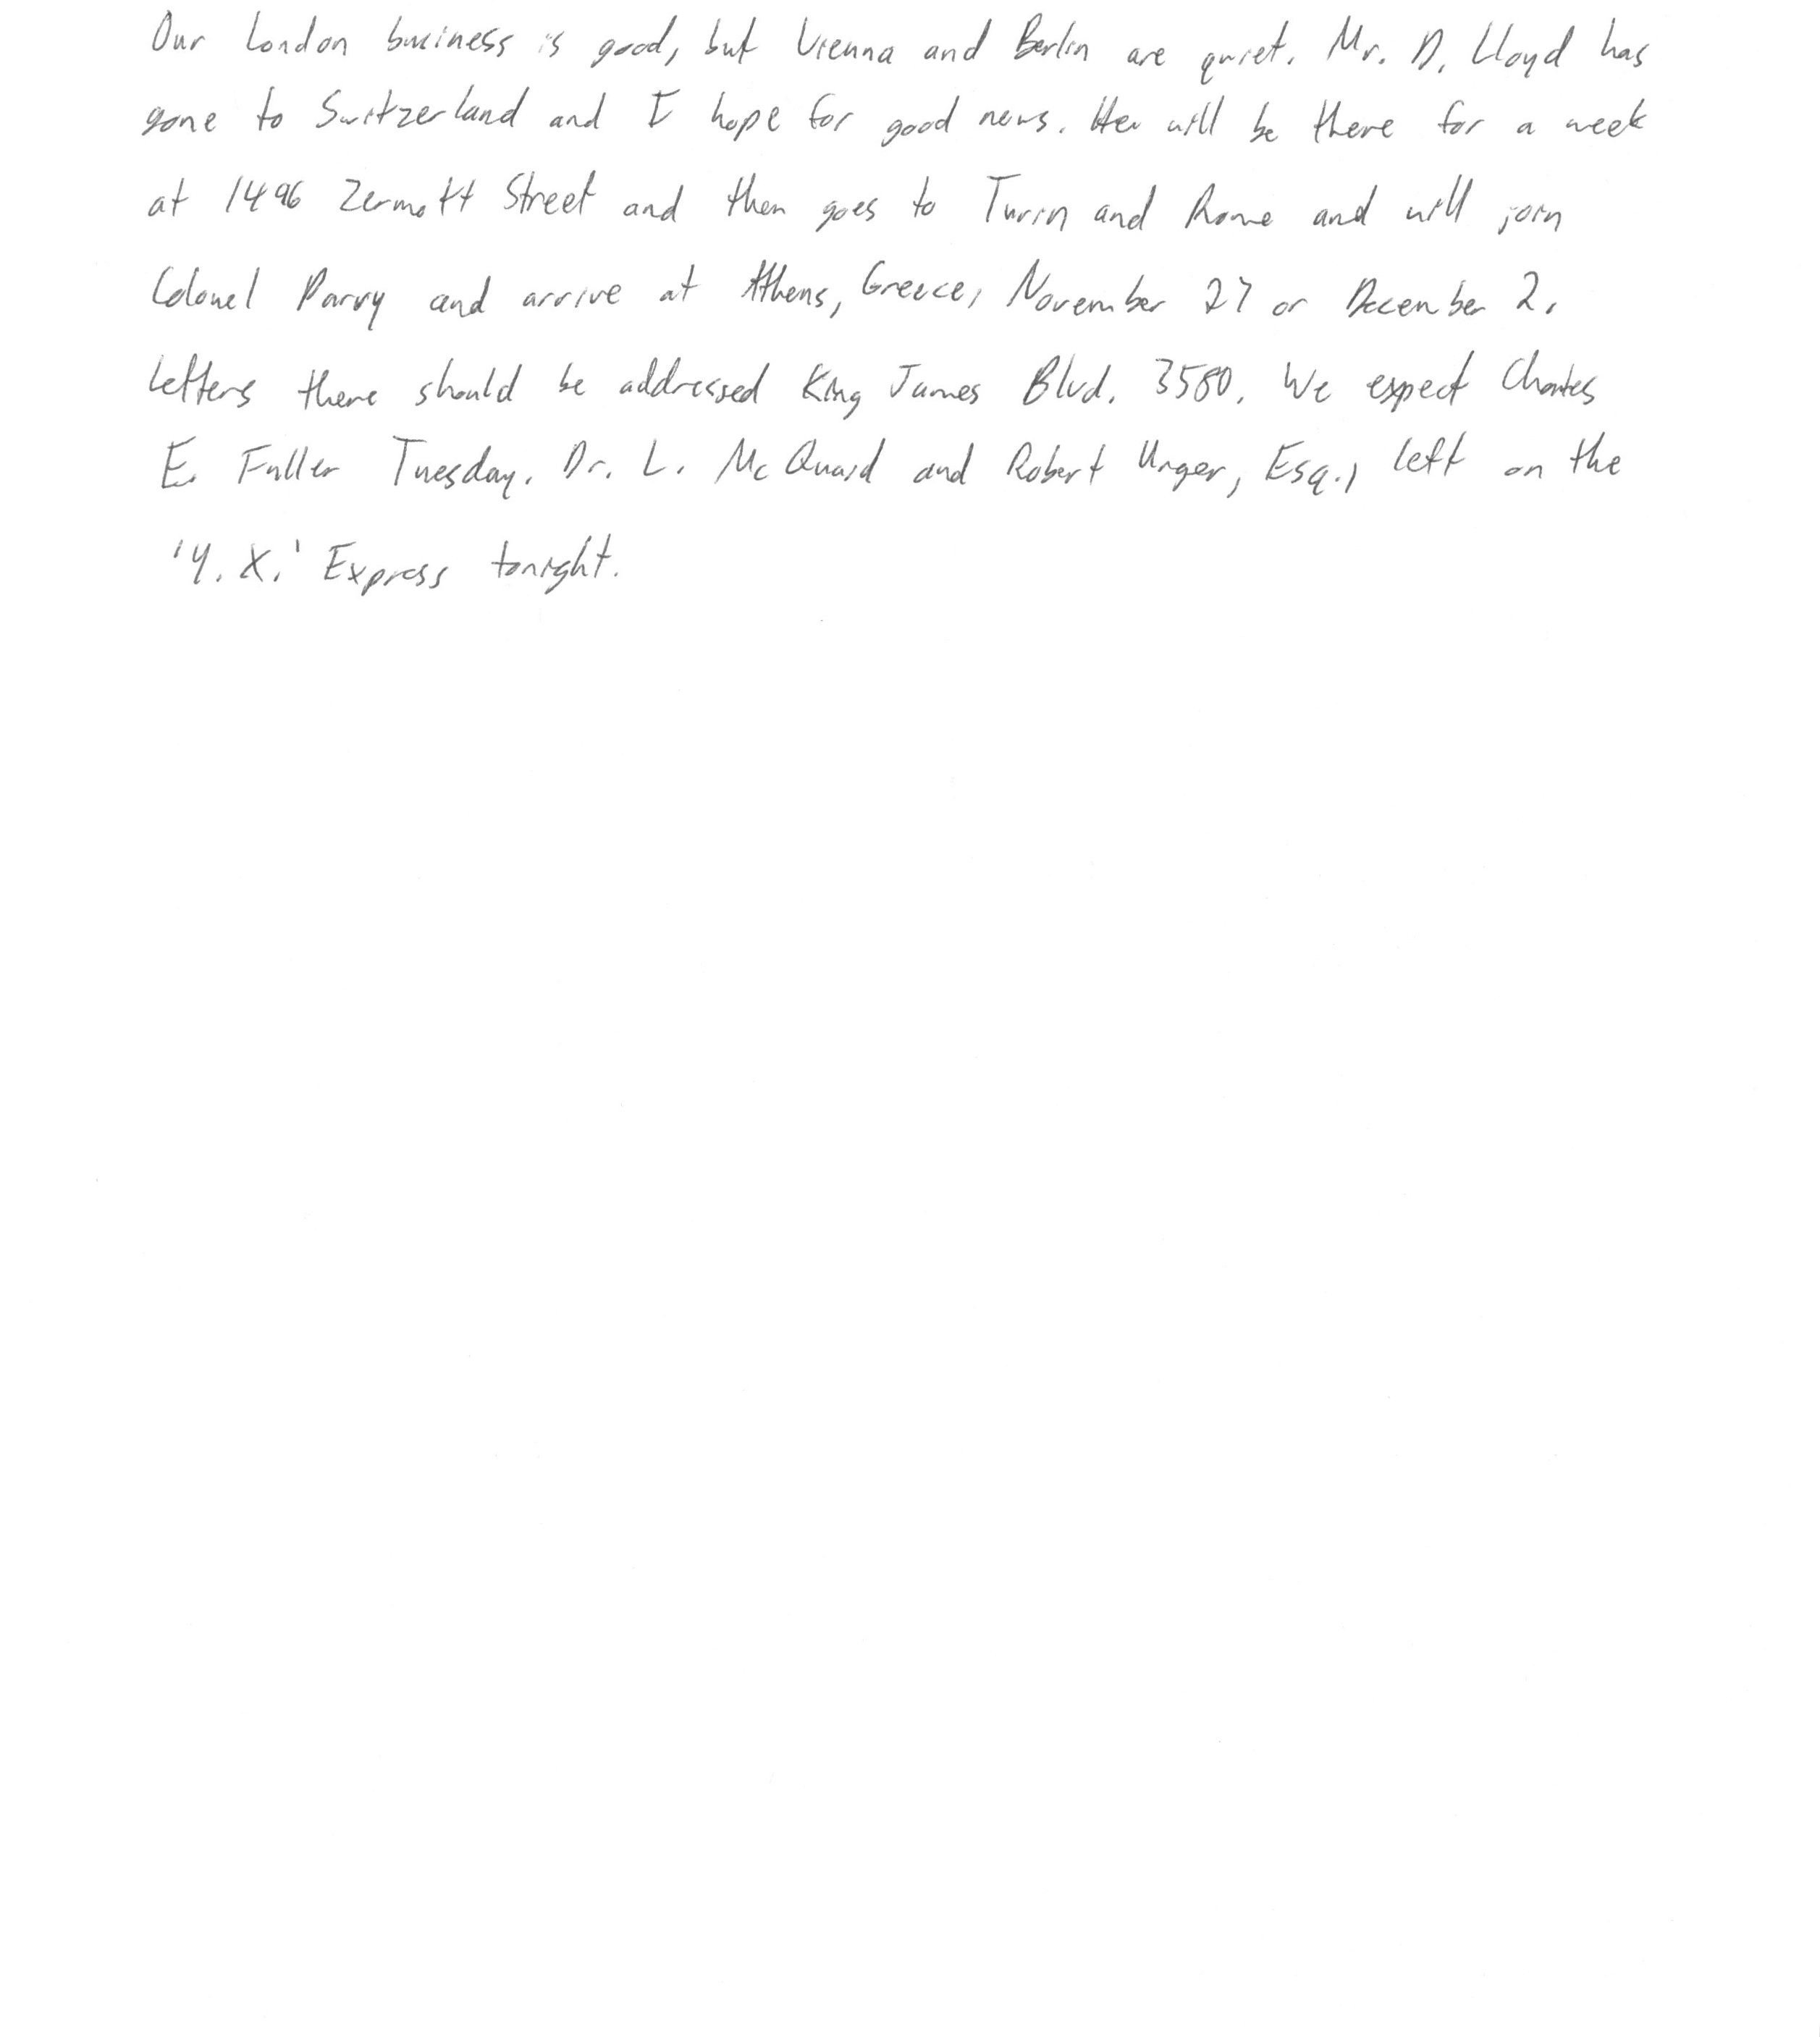 Our London business is good, but Vienna and Berlin are quiet. Mr. D. Lloyd has
gone to Switzerland and I hope for good news. Her will be there for a week
at 1496 Zermott Street and then goes to Turin and Rome and will join
Colonel Parry and arrive at Athens, Greece, November 27 or December 2.
Letters there should be addressed King James Blvd. 3580. We expect Charles
E. Fuller Tuesday. Dr. L. McQuaid and Robert Unger, Esq., left on the
'Y. X.' Express tonight.